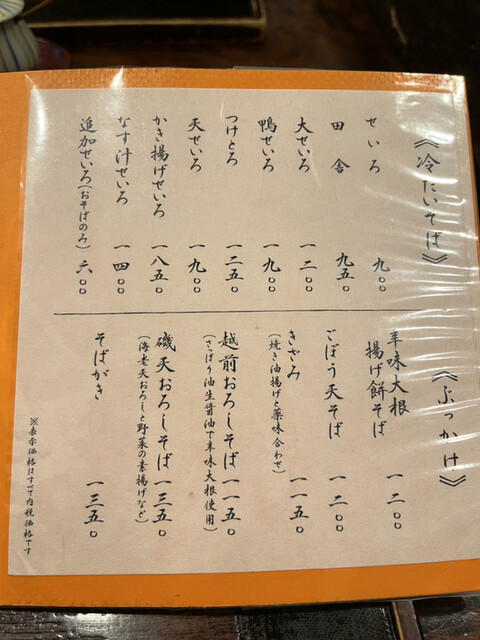 《冷たいそば》
せいろ 九〇〇
田舎 九五〇
大せいろ 一二〇〇
鴨せいろ 一九〇〇
つけとろ 一二五〇
天せいろ 一九〇〇
かき揚げせいろ 一八五〇
なす汁せいろ 一四〇〇
追加せいろ(おそばのみ) 六〇〇
《ぶっかけ》
辛味大根
揚げ餅そば 一二〇〇
ごぼう天そば 一二〇〇
きざみ 一一五〇
(焼き油揚げと薬味合わせ)
越前おろしそば 一一五〇
(さばり油生醤油で辛味大根使用)
磯天おろしそば 一三五〇
(海老天おろしと野菜の素揚げなど)
そばがき 一三五〇
※表示価格はすべて内税価格です